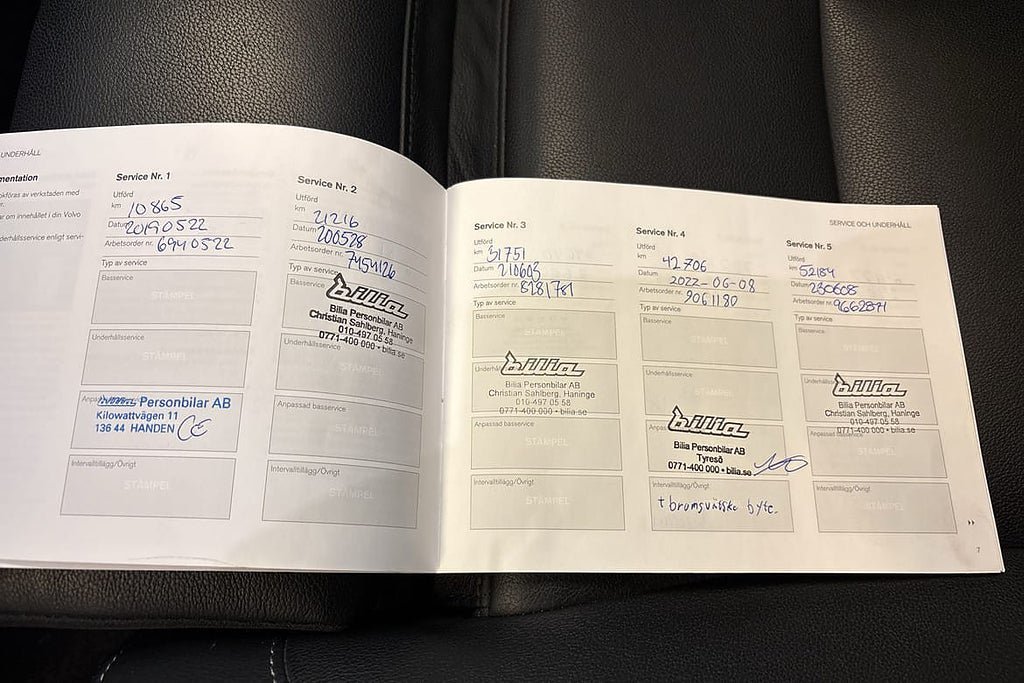 UNDERHÅLL
mentation
okföras av verkstaden med
ar om innehållet i din Volvo
derhållsservice enligt servi-
Service Nr. 1
Utförd
km 10865
Datum 20190522
Arbetsorder nr. 6940522
Typ av service
Basservice
STÄMPEL
Underhållsservice
STÄMPEL
Personbilar AB
Kilowattvägen 11
136 44 HANDEN
Intervalltillägg/Övrigt
STÄMPEL
Service Nr. 2
Utförd
km 21216
Datum 200528
Arbetsorder nr. 7454126
Typ av service
Basservice
bilia
Bilia Personbilar AB
Christian Sahlberg, Haninge
010-497 05 58
0771-400 000 • bilia.se
Underhållsservice
STÄMPEL
Anpassad basservice
STÄMPEL
Intervalltillägg/Övrigt
STÄMPEL
Service Nr. 3
Utförd
km 31751
Datum 210603
Arbetsorder nr. 8281781
Typ av service
Basservice
STÄMPEL
bilia
Bilia Personbilar AB
Christian Sahlberg, Haninge
010-497 05 58
0771-400 000 • bilia.se
Anpassad basservice
STÄMPEL
Intervalltillägg/Övrigt
STÄMPEL
Service Nr. 4
Utförd
km 42706
Datum 2022-06-08
Arbetsorder nr. 9061180
Typ av service
Basservice
STÄMPEL
Underhållsservice
STÄMPEL
bilia
Bilia Personbilar AB
Tyresö
0771-400 000 • bilia.se
Intervalltillägg/Övrigt
+ bromsvätske byte.
SERVICE OCH UNDERHÅLL
Service Nr. 5
Utförd
km 52184
Datum 230608
Arbetsorder nr. 9662871
Typ av service
Basservice
STÄMPEL
bilia
Bilia Personbilar AB
Christian Sahlberg, Haninge
010-497 05 58
0771-400 000 • bilia.se
Anpassad basservice
STÄMPEL
Intervalltillägg/Övrigt
STÄMPEL
7